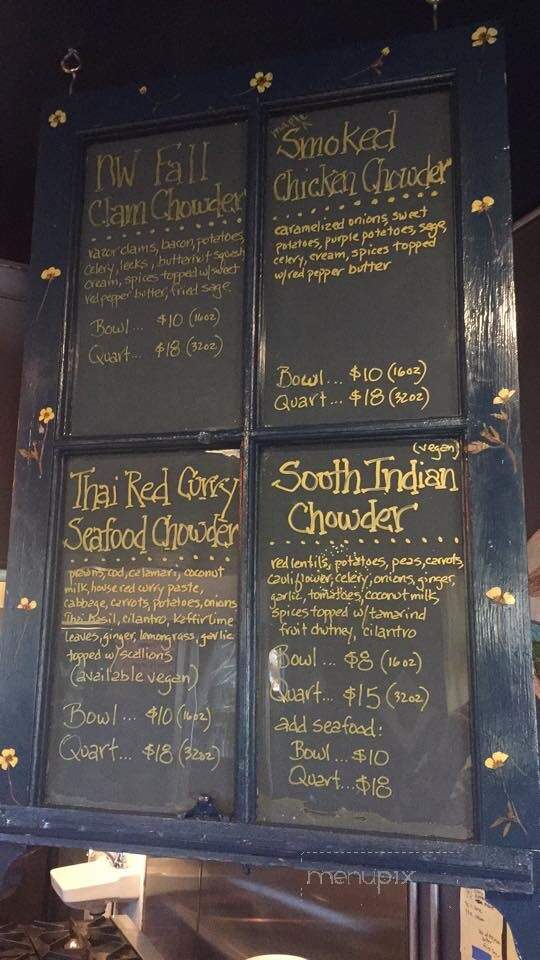 NW Fall
Clam Chowder
razor clams, bacon, potatoes,
celery, leeks, butternut squash,
cream, spices topped w/sweet
red pepper butter, fried sage
Bowl... $10 (16oz)
Quart... $18 (32oz)
maple
Smoked
Chicken Chowder
caramelized onions, sweet
potatoes, purple potatoes, sage,
celery, cream, spices topped
w/red pepper butter
Bowl... $10 (16oz)
Quart... $18 (32oz)
Thai Red Curry
Seafood Chowder
prawns, cod, calamari, coconut
milk, house red curry paste,
cabbage, carrots, potatoes, onions
Thai basil, cilantro, Keffir Lime
leaves, ginger, lemongrass, garlic
topped w/scallions
(available vegan)
Bowl... $10 (16oz)
Quart... $18 (32oz)
(vegan)
South Indian
Chowder
red lentils, potatoes, peas, carrots,
cauliflower, celery, onions, ginger,
garlic, tomatoes, coconut milk
spices topped w/tamarind
fruit chutney, cilantro
Bowl... $8 (16oz)
Quart... $15 (32oz)
add seafood:
Bowl... $10
Quart... $18
menupix